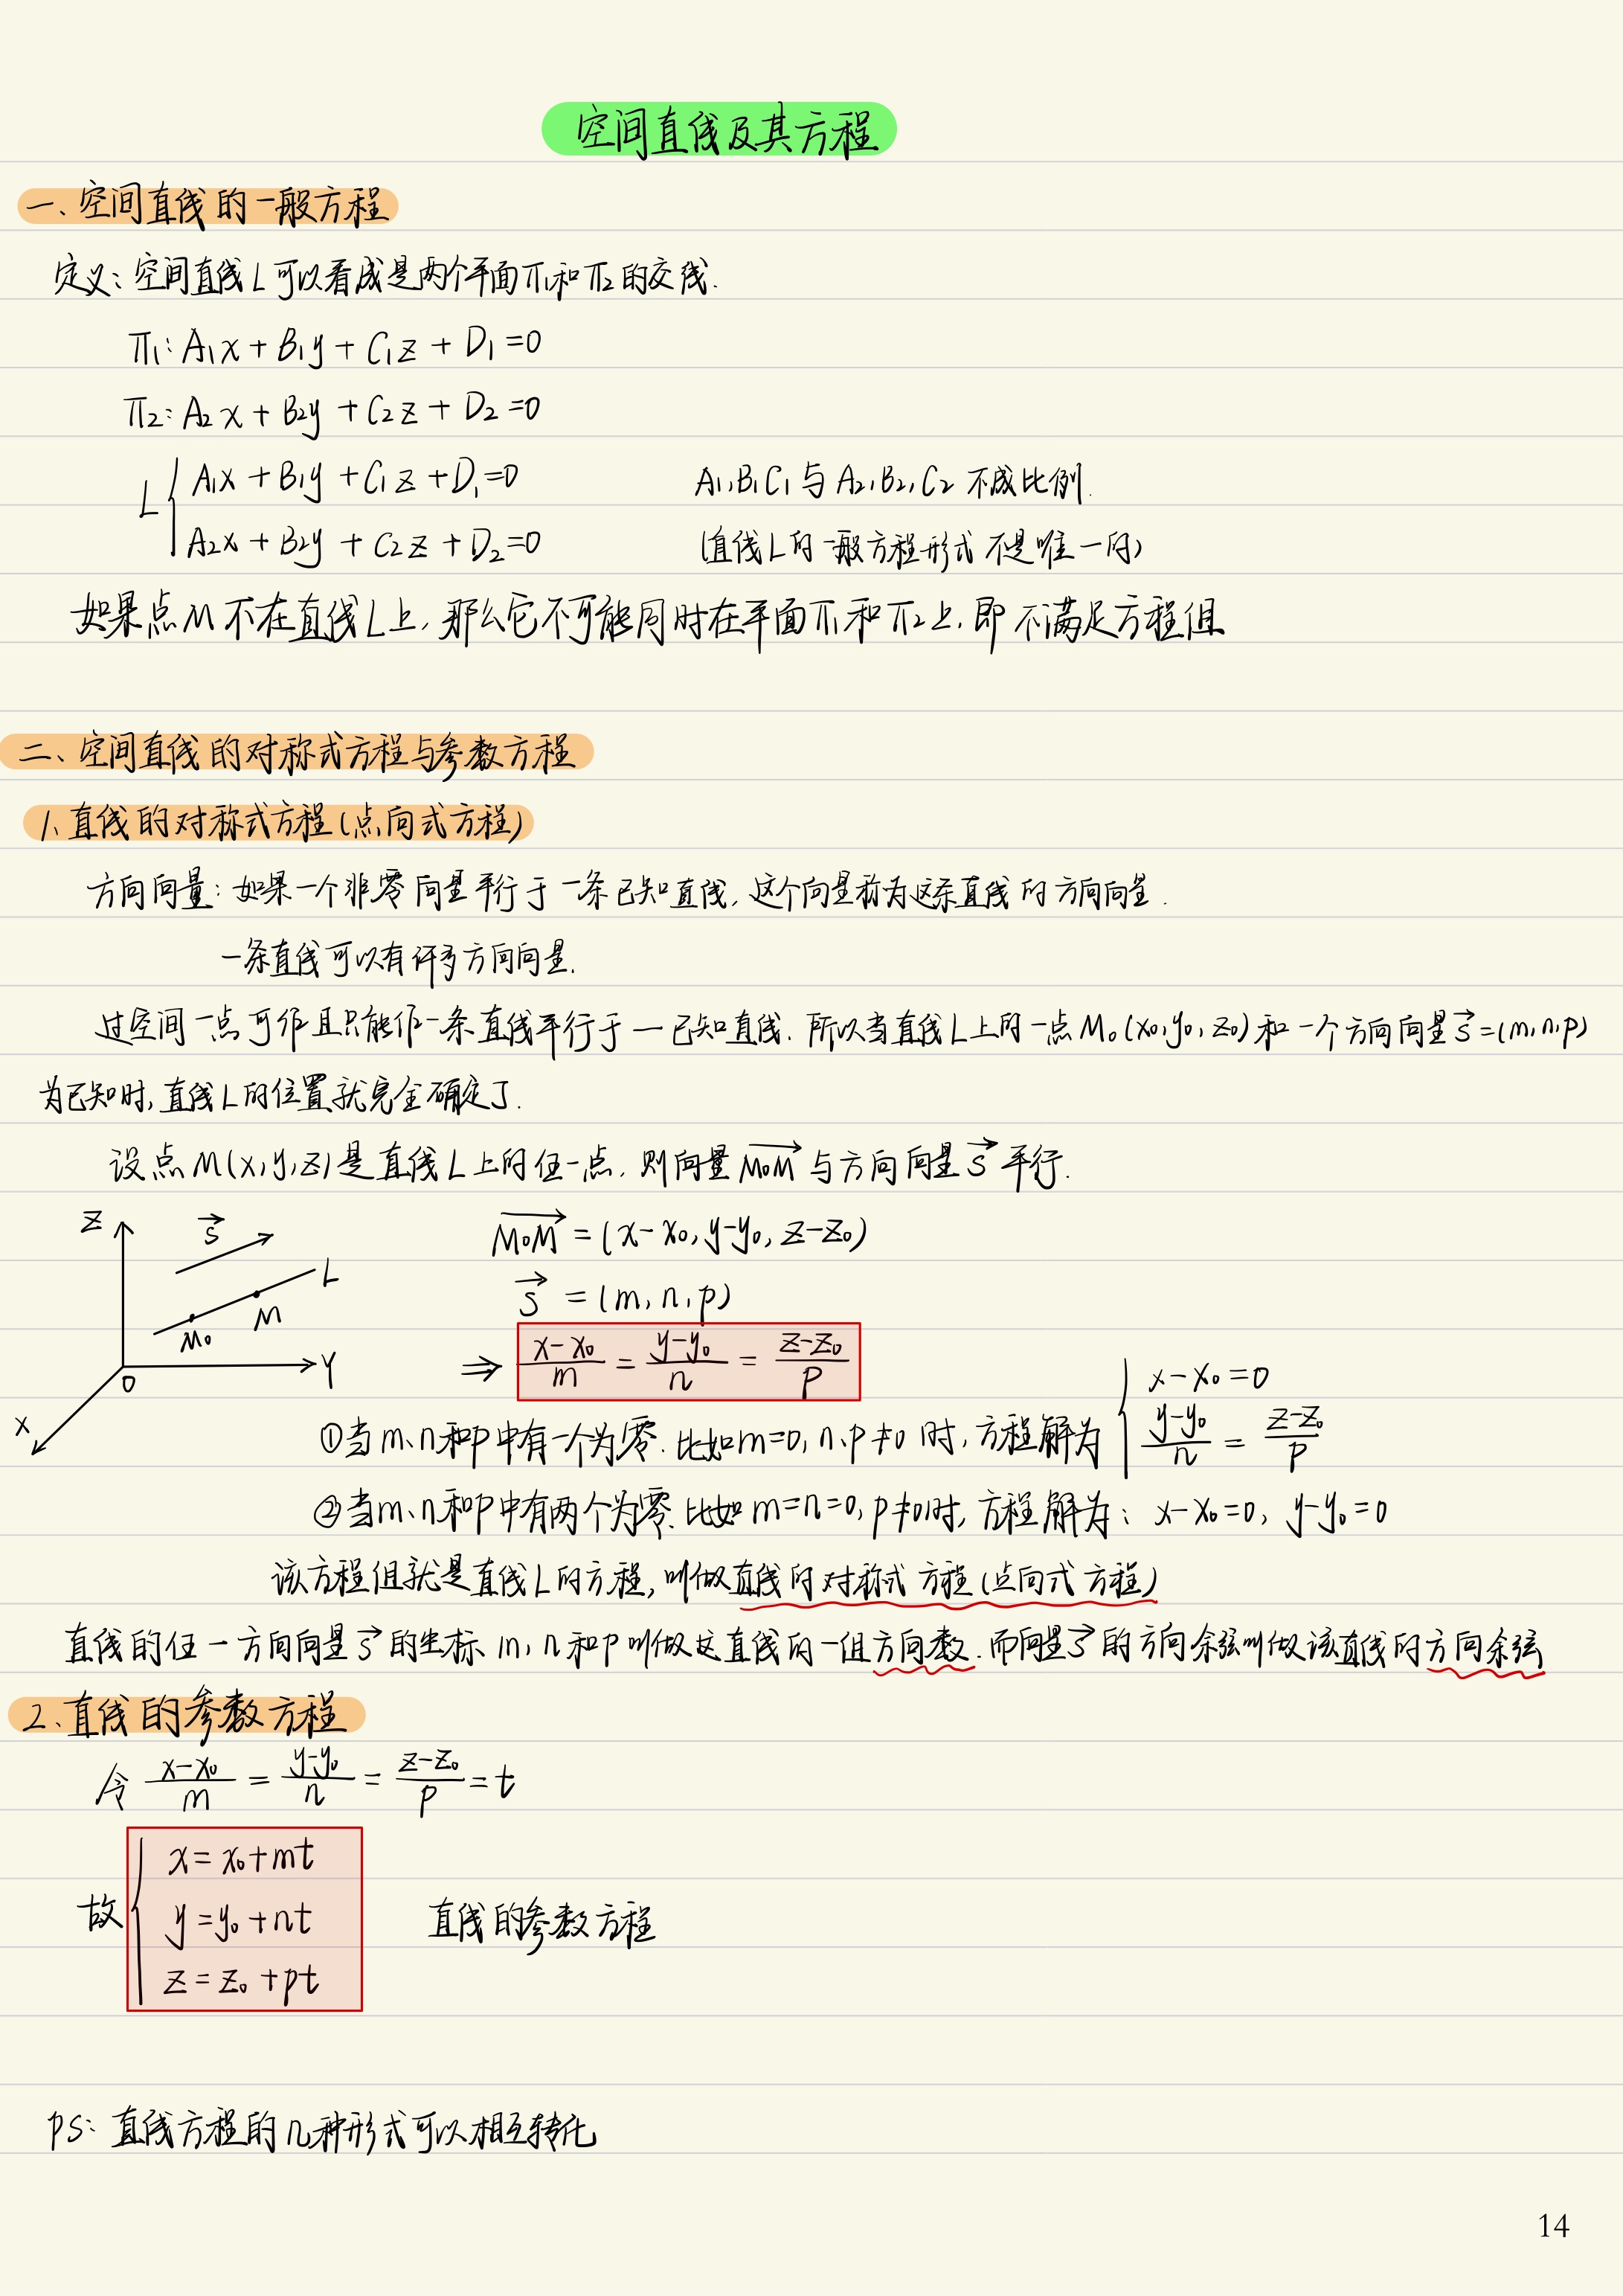 空间直线及其方程
一、空间直线的一般方程
定义：空间直线L可以看成是两个平面π₁和π₂的交线.
π₁: A₁x + B₁y + C₁z + D₁ = 0
π₂: A₂x + B₂y + C₂z + D₂ = 0
L { A₁x + B₁y + C₁z + D₁ = 0   A₁,B₁C₁与A₂,B₂,C₂不成比例.
A₂x + B₂y + C₂z + D₂ = 0   (直线L的一般方程形式不是唯一的)
如果点M不在直线L上,那么它不可能同时在平面π₁和π₂上,即不满足方程组
二、空间直线的对称式方程与参数方程
1、直线的对称式方程(点向式方程)
方向向量：如果一个非零向量平行于一条已知直线,这个向量称为这条直线的方向向量.
一条直线可以有许多方向向量.
过空间一点可作且只能作一条直线平行于一已知直线.所以当直线L上的一点M₀(x₀,y₀,z₀)和一个方向向量s⃗=(m,n,p)
为已知时,直线L的位置就完全确定了.
设点M(x,y,z)是直线L上的任一点,则向量M₀M⃗与方向向量s⃗平行.
z s⃗ L M M₀ O Y x
M₀M⃗ = (x-x₀, y-y₀, z-z₀)
s⃗ = (m, n, p)
⇒ (x-x₀)/m = (y-y₀)/n = (z-z₀)/p
①当m、n和p中有一个为零.比如m=0, n,p≠0时,方程解为 { x-x₀=0
(y-y₀)/n = (z-z₀)/p
②当m、n和p中有两个为零.比如m=n=0, p≠0时,方程解为: x-x₀=0, y-y₀=0
该方程组就是直线L的方程,叫做直线的对称式方程(点向式方程)
直线的任一方向向量s⃗的坐标m,n和p叫做这直线的一组方向数.而向量s⃗的方向余弦叫做该直线的方向余弦
2、直线的参数方程
令 (x-x₀)/m = (y-y₀)/n = (z-z₀)/p = t
x = x₀+mt
故 { y = y₀+nt   直线的参数方程
z = z₀+pt
PS: 直线方程的几种形式可以相互转化
14